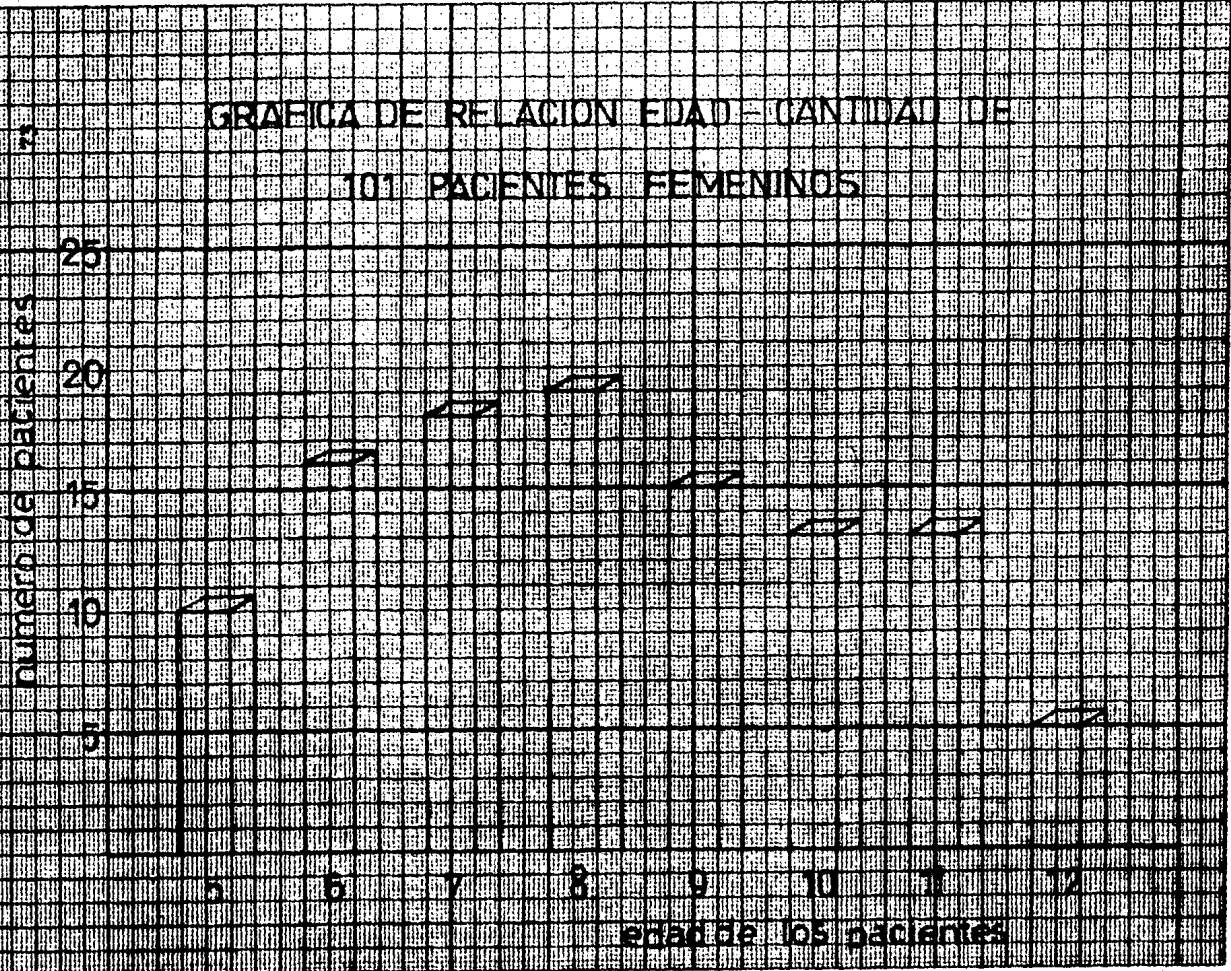 73
GRAFICA DE RELACION EDAD - CANTIDAD DE
101 PACIENTES FEMENINOS
numero de pacientes
25
20
15
10
5
5 6 7 8 9 10 11 12
edad de los pacientes